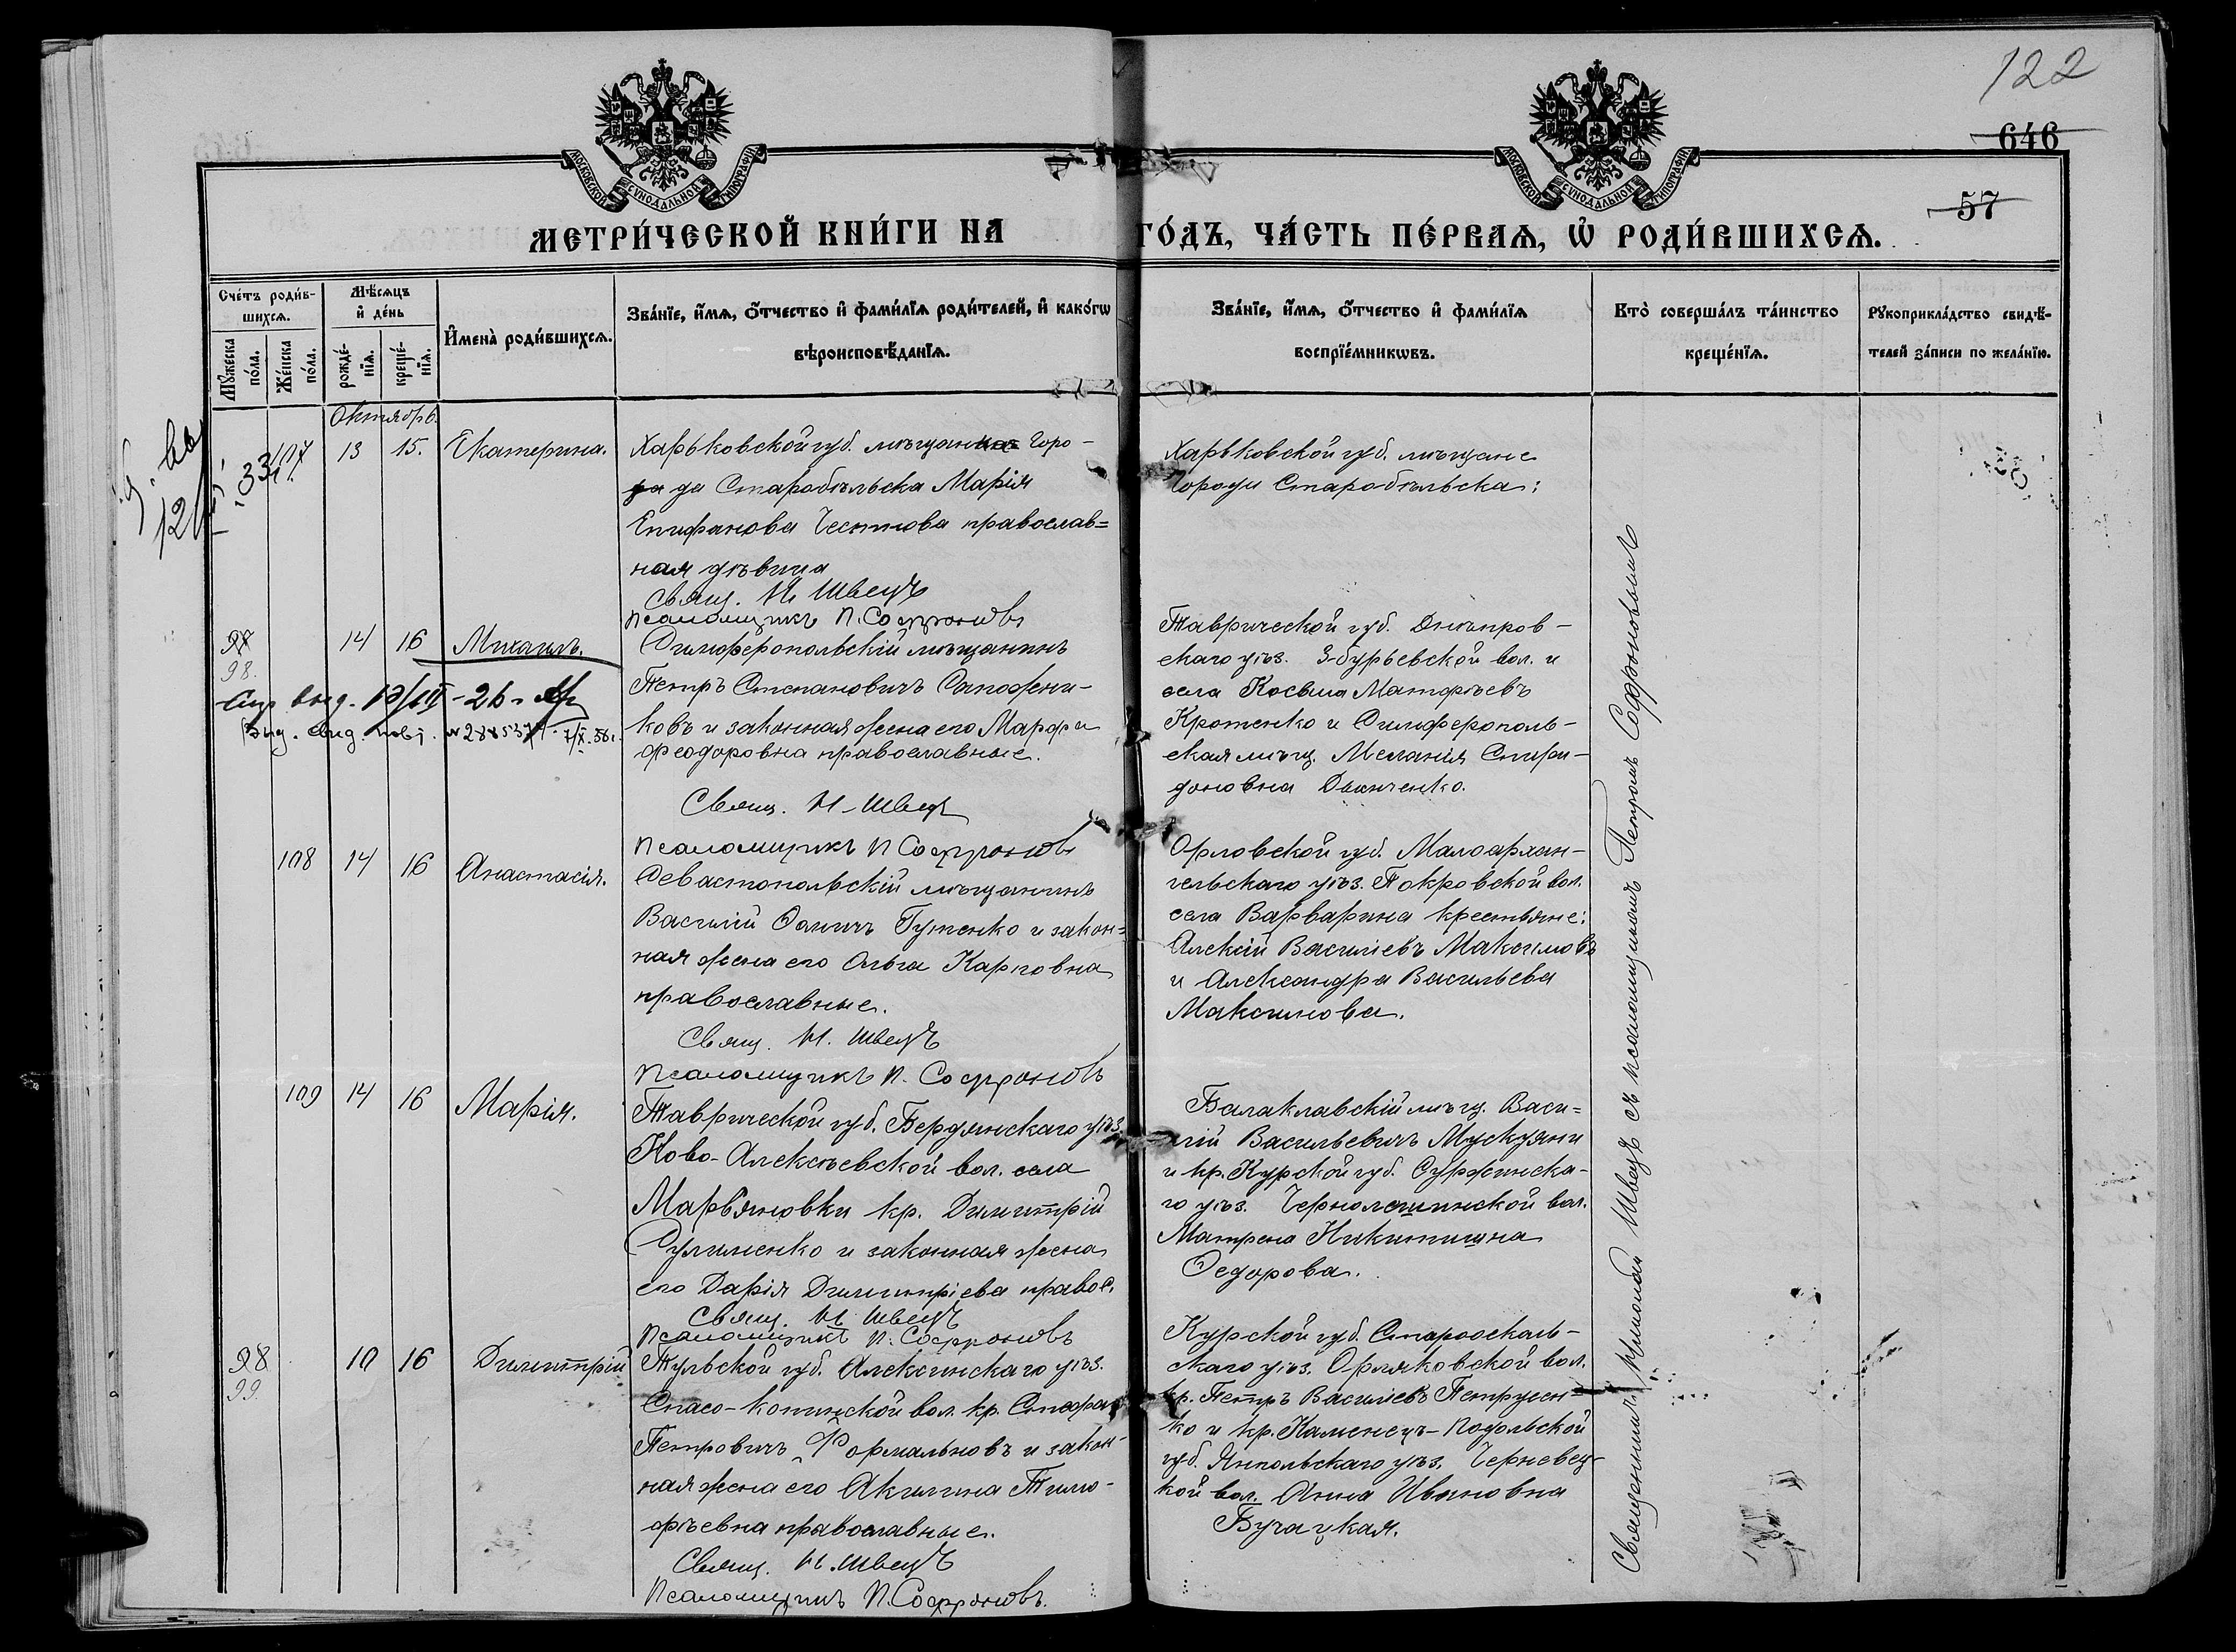 122
646
57
МОСКОВСКОЙ СУНОДАЛЬНОЙ ТИПОГРАФІИ
МОСКОВСКОЙ СУНОДАЛЬНОЙ ТИПОГРАФІИ
МЕТРИ́ЧЕСКОЙ КНИ́ГИ НА ГО́ДЪ, ЧА́СТЬ ПЕ́РВАѦ, Ѡ РОДИ́ВШИХСѦ.
Счє́тъ роди́в-
шихсѧ.
Мѣ́сѧцъ
и҆ де́нь
Мꙋ́жеска по́ла.
Же́нска по́ла.
рожде́-нїѧ.
креще́-нїѧ.
И҆мена̀ роди́вшихсѧ.
Зва́нїе, и҆́мѧ, ѻ҆́тчество и҆ фами́лїѧ роди́телей, и҆ како́гѡ
вѣроисповѣ́данїѧ.
Зва́нїе, и҆́мѧ, ѻ҆́тчество и҆ фами́лїѧ
воспрїе́мникѡвъ.
Кто̀ соверша́лъ та́инство
креще́нїѧ.
Рꙋкоприкла́дство свидѣ́-
телей за́писи по жела́нїю.
Октябрь.
107 13 15. Екатерина.
Харьковской губ. мѣщанка Горо-
да Старобѣльска Марія
Епифанова православ=
ная дѣвица
Свящ. Н. Швецъ
Псаломщикъ П. Софроновъ
Харьковской губ. мѣщане
Города Старобѣльска:
97
98.
14 16 Михаилъ.
Симферопольскій мѣщанинъ
Петръ Степановичъ Сапожни-
ковъ и законная жена его Марфа
Феодоровна православные.
Свящ. Н. Швецъ
Псаломщикъ П Софроновъ
Таврической губ. Днѣпров-
скаго уѣз. З-бурьевской вол. и
села Косьма Матфѣевъ
Кротенко и Симферополь-
ская мѣщ. Меланія Спири-
доновна
108 14 16 Анастасія.
Севастопольскій мѣщанинъ
Василій Гуменко и закон=
ная жена его Ольга Карповна
православные.
Свящ. Н. Швецъ
Псаломщикъ П. Софроновъ
Орловской губ. Малоархан-
гельскаго уѣз. Покровской вол.
села Варварина крестьяне:
Алексій Василіевъ Максимовъ
и Александра Васильева
Максимова.
109 14 16 Марія.
Таврической губ. Бердянскаго уѣз.
Ново-Алексѣевской вол. села
Марьяновки кр. Димитрій
Сулименко и законная жена
его Дарія Димитріева правос.
Свящ. Н Швецъ
Псаломщикъ П. Софроновъ
Балаклавскій мѣщ. Васи=
лій Васильевичъ
и кр. Курской губ. Суджинска-
го уѣз. вол.
Матрена Никитишна
Федорова.
98
99.
10 16 Димитрій
Тульской губ. Алексинскаго уѣз.
Спасо-Конинской вол. кр. Стефан
Петровичъ и закон-
ная жена его Акилина Тимо-
фѣевна православные.
Свящ. Н. Швецъ
Псаломщикъ П. Софроновъ.
Курской губ. Старооскаль-
скаго уѣз. Орликовской вол.
кр. Петръ Василіевъ Петрусен-
ко и кр. Каменецъ-Подольской
губ. Ямпольскаго уѣз. Черневец-
кой вол. Анна Ивановна
Бучацкая.
Священникъ Николай Швецъ съ псаломщикомъ Петромъ Софроновымъ